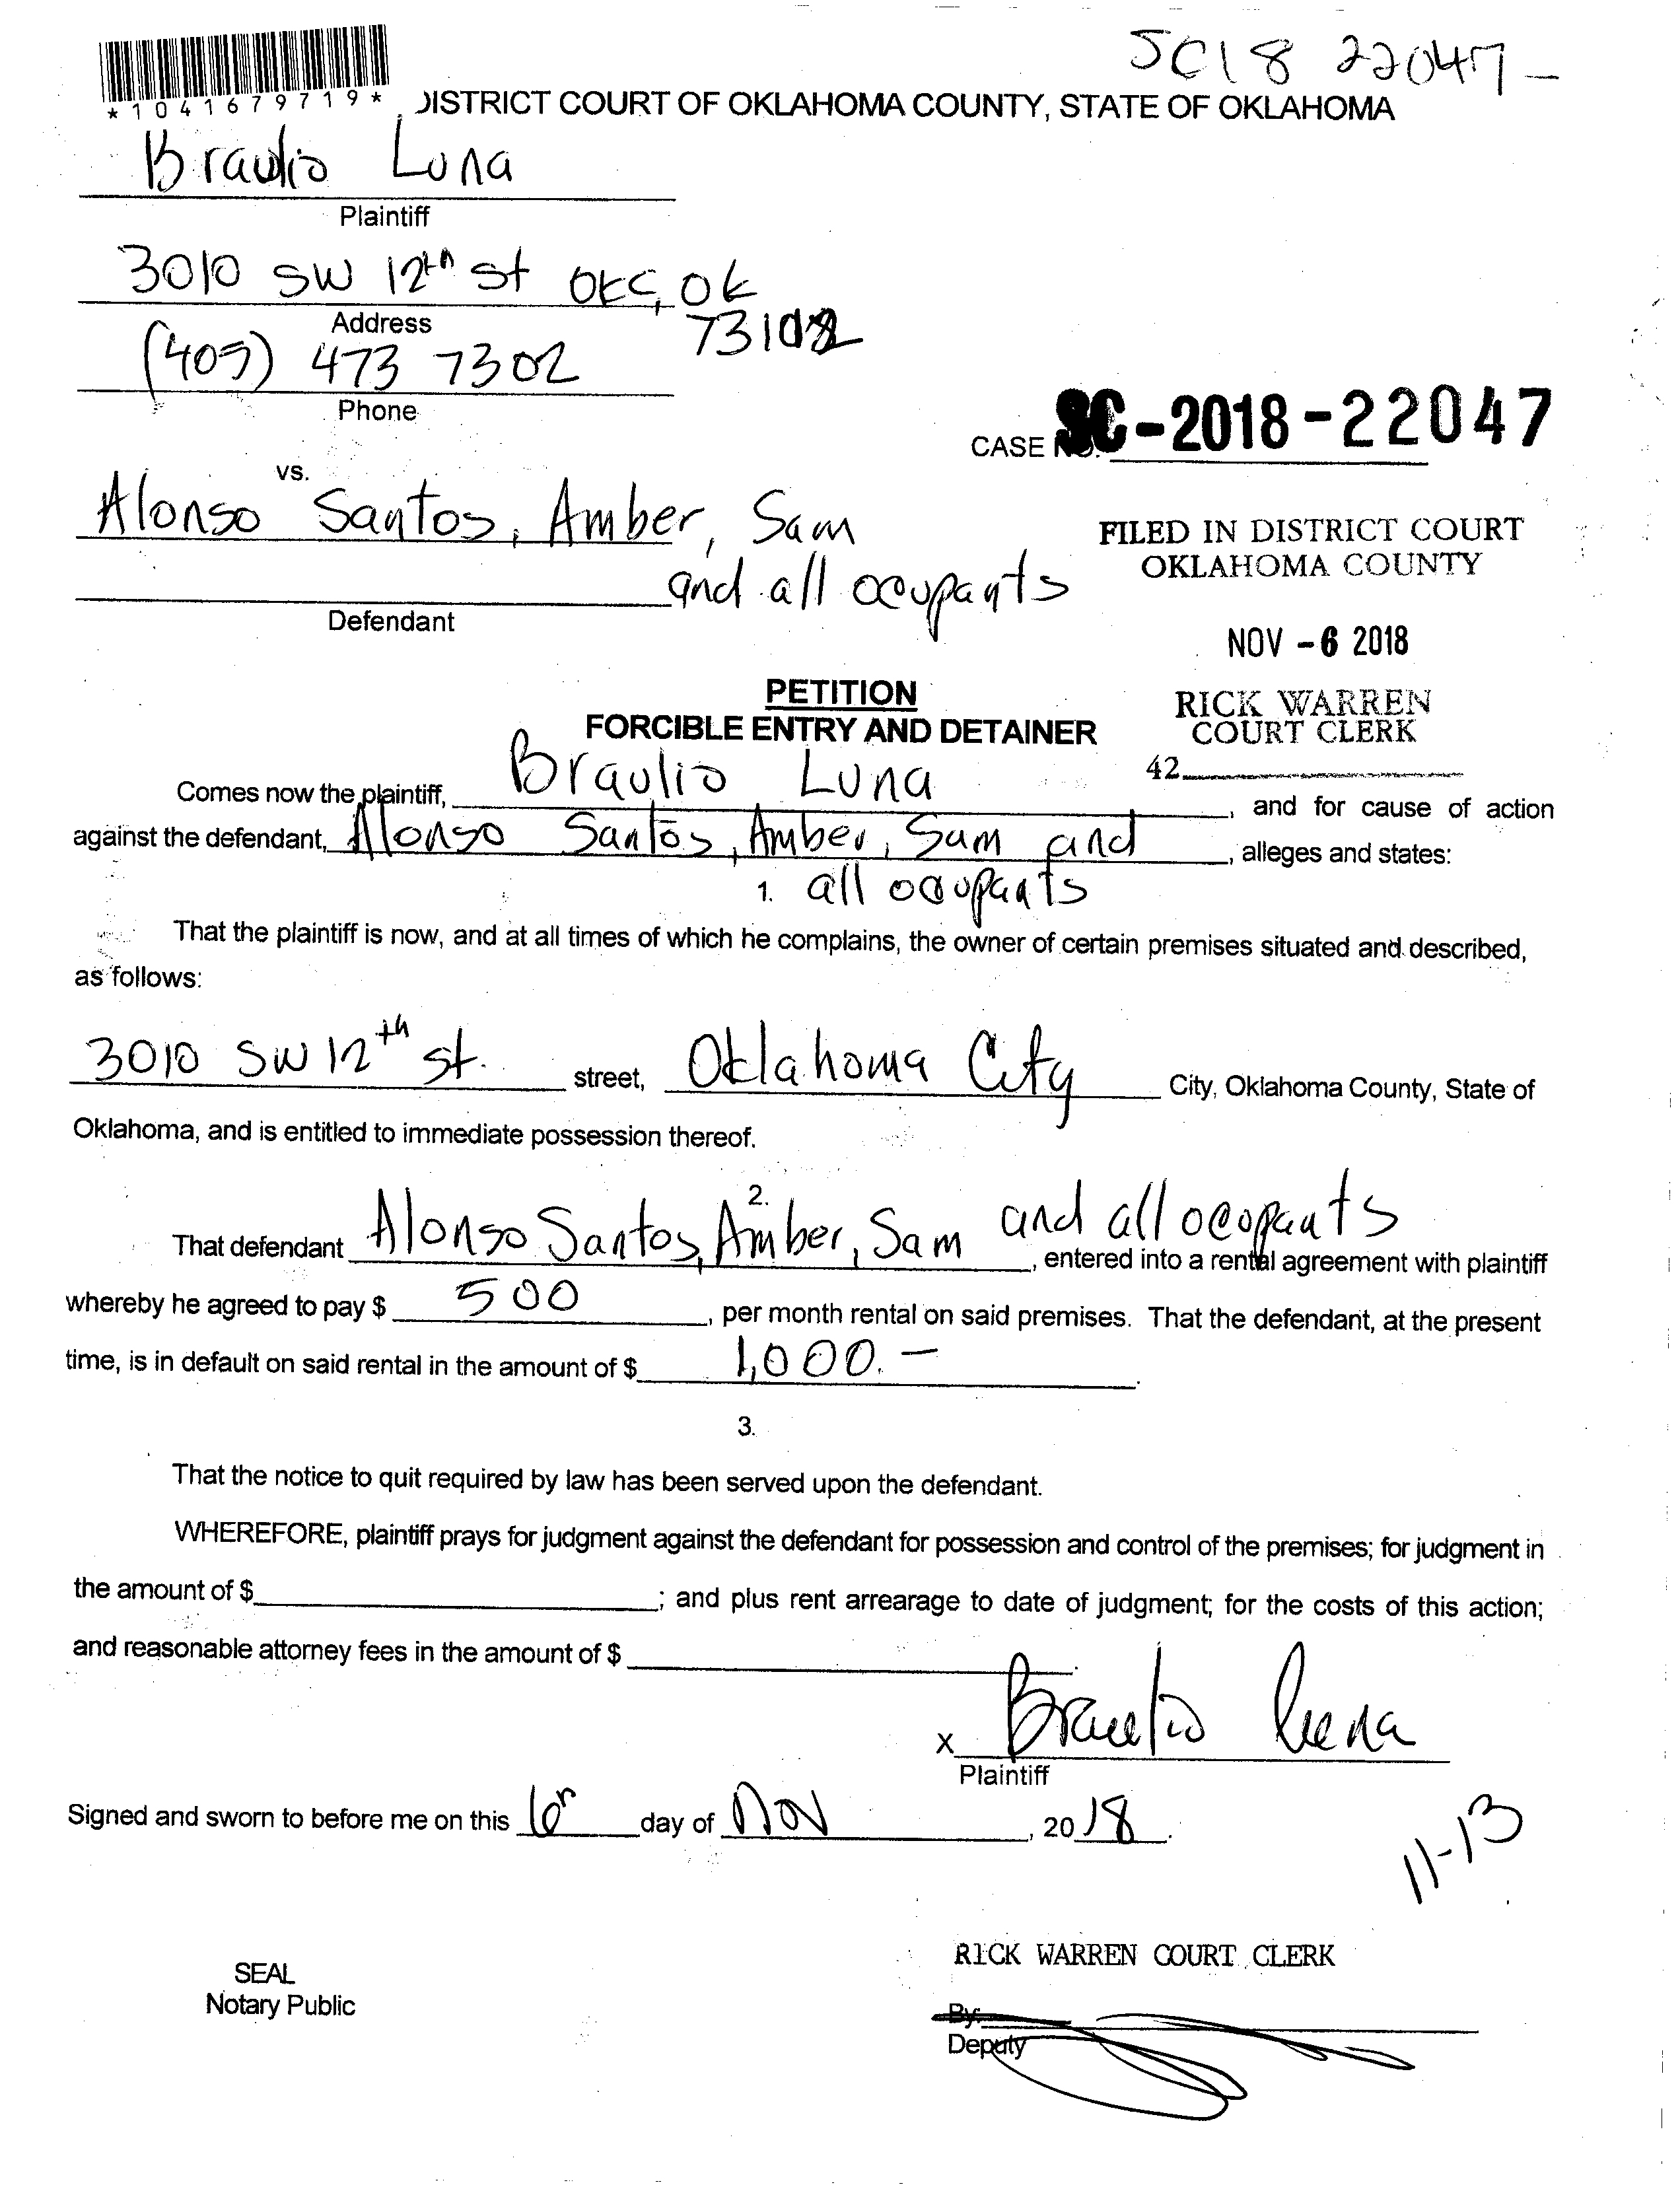 SC18 22047-
*1041679719*
DISTRICT COURT OF OKLAHOMA COUNTY, STATE OF OKLAHOMA
Braulio Luna
Plaintiff
3010 SW 12th st OKC, OK
Address
73108
(405) 473 7302
Phone
CASE NO. SC-2018-22047
vs.
Alonso Santos, Amber, Sam
and all ocupants
Defendant
FILED IN DISTRICT COURT
OKLAHOMA COUNTY
NOV -6 2018
RICK WARREN
COURT CLERK
42
PETITION
FORCIBLE ENTRY AND DETAINER
Comes now the plaintiff, Braulio Luna, and for cause of action
against the defendant, Alonso Santos, Amber, Sam and, alleges and states:
1. all ocupants
That the plaintiff is now, and at all times of which he complains, the owner of certain premises situated and described,
as follows:
3010 SW 12th st. street, Oklahoma City City, Oklahoma County, State of
Oklahoma, and is entitled to immediate possession thereof.
2.
That defendant Alonso Santos, Amber, Sam and all ocopants, entered into a rental agreement with plaintiff
whereby he agreed to pay $ 500, per month rental on said premises. That the defendant, at the present
time, is in default on said rental in the amount of $ 1,000.-.
3.
That the notice to quit required by law has been served upon the defendant.
WHEREFORE, plaintiff prays for judgment against the defendant for possession and control of the premises; for judgment in
the amount of $; and plus rent arrearage to date of judgment; for the costs of this action;
and reasonable attorney fees in the amount of $.
X Braulio Luna
Plaintiff
Signed and sworn to before me on this day of Nov, 2018.
11-13
RICK WARREN COURT CLERK
SEAL
Notary Public
By:
Deputy